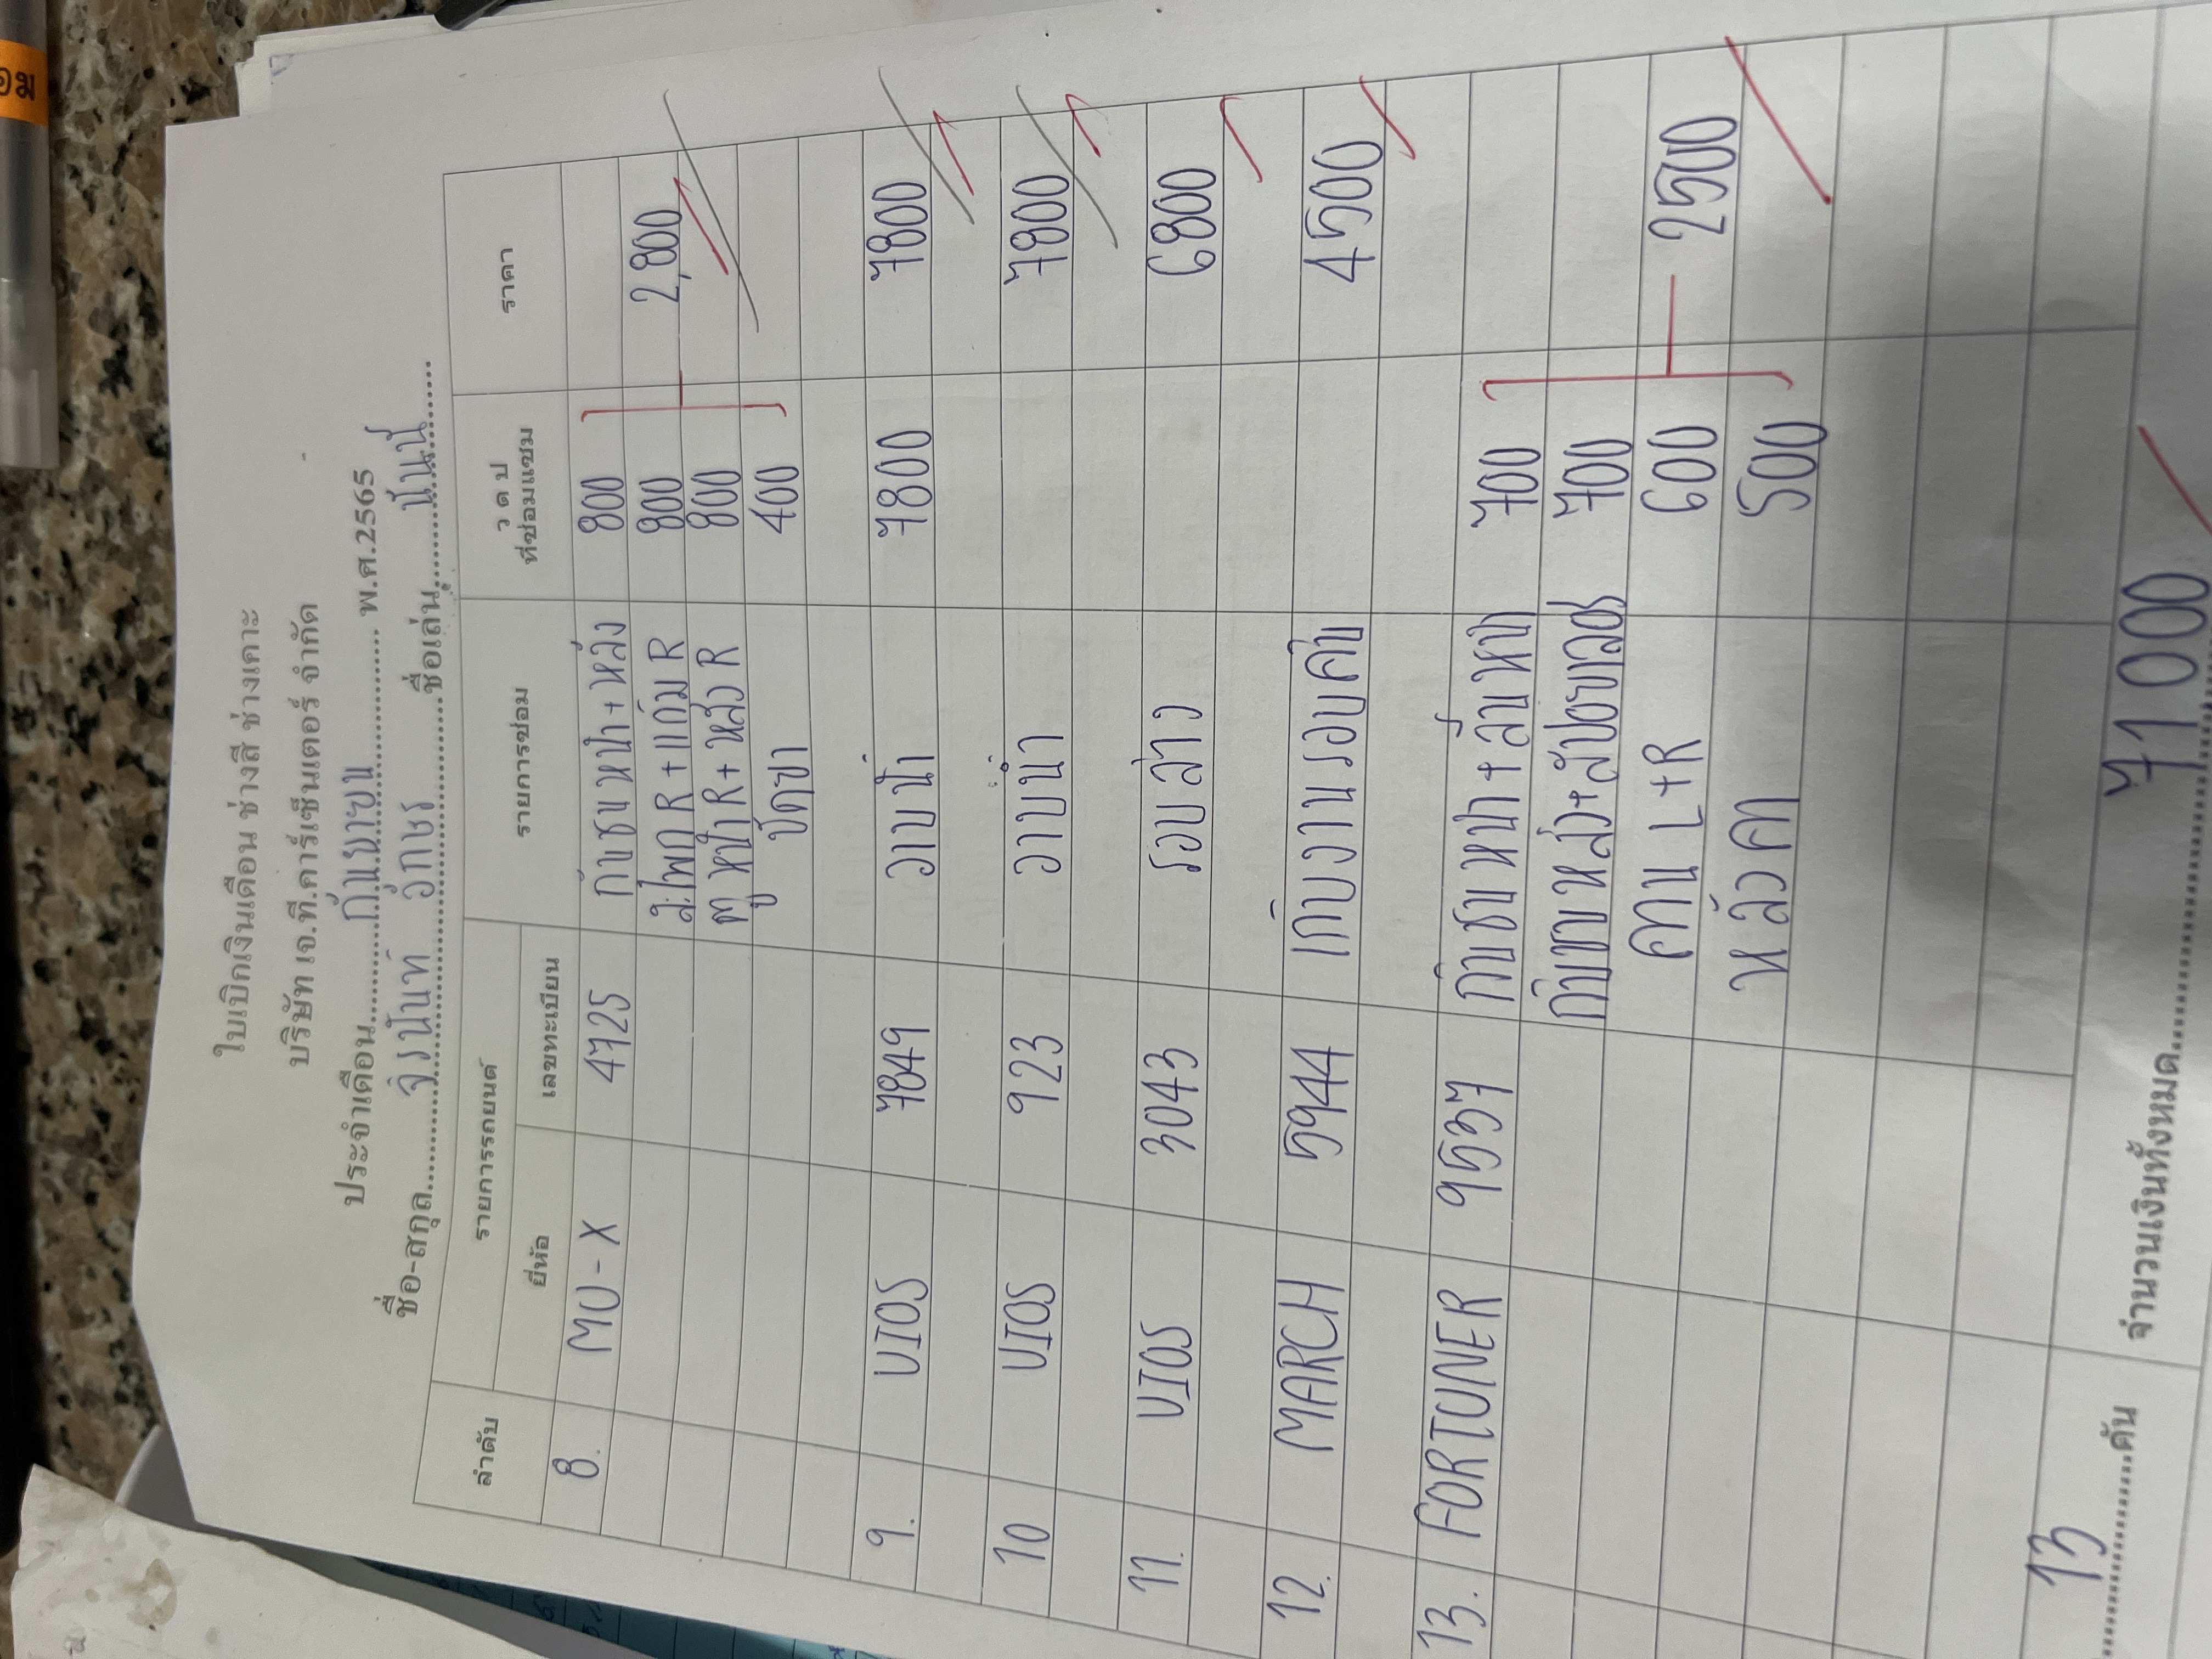 ใบเบิกเงินเดือน ช่างสี ช่างเคาะ
บริษัท เจ.ที.คาร์เซ็นเตอร์ จำกัด
ประจำเดือน กันยายน พ.ศ.2565
ชื่อ-สกุล จีรนันท์ ชื่อเล่น นันน์
ลำดับ รายการรถยนต์ รายการซ่อม ว ด ป ที่ซ่อมแซม ราคา
ยี่ห้อ เลขทะเบียน
8. MU-X 4725 กันชนหน้า+หลัง 800
R+แก้ม R 800 2,800
ตู หน้า R+หลัง R 800
ปัดเงา 400
9. VIOS 7849 จาบน้ำ 7800 7800
10 VIOS 923 จาบน้ำ 7800
11. VIOS 3043 รอบล่าง 6800
12. MARCH 5944 เก็บงานรอบคัน 4500
13. FORTUNER 9537 กันชนหน้า+ลิ้นหน้า 700
700
คาน L+R 600 2500
หลังคา 500
13 คัน จำนวนเงินทั้งหมด 71000